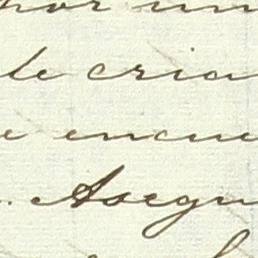 por un
de cria
e encue
. Asegu